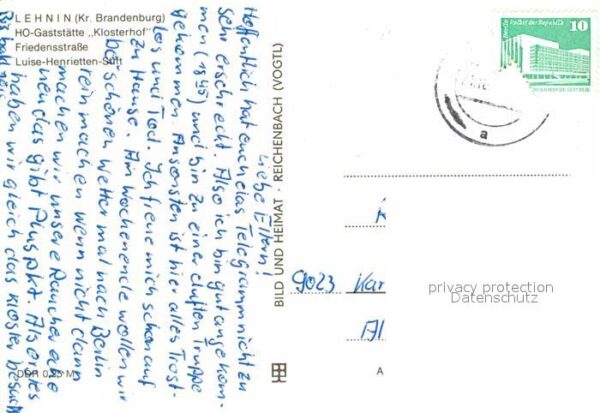 LEHNIN (Kr. Brandenburg)
HO-Gaststätte „Klosterhof"
Friedensstraße
Luise-Henrietten-Stift
Liebe Eltern!
Hoffentlich hat euch das Telegramm nicht zu
sehr erschreckt. Also ich bin gut angekom-
men (1845) und bin zu einer duften Truppe
gekommen. Ansonsten ist hier alles Trost-
los und Tod. Ich freue mich schon auf
zu Hause. Am Wochenende wollen wir
bei schönen Wetter mal nach Berlin
rein machen wenn nicht dann
machen wir unsere Raucherecke
neu das gibt Pluspkt. Als erstes
haben wir gleich das Kloster besucht
Bis bald
DDR 0,25 M
BILD UND HEIMAT · REICHENBACH (VOGTL)
Berlin, Palast der Republik
10
a
9023 Kar
Al
A
privacy protection
Datenschutz